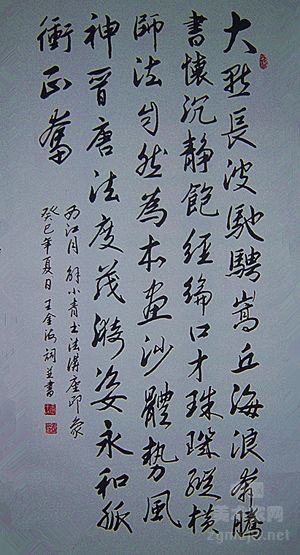 大長波馳騁嵩丘海浪奔騰
書懷沉靜飽經綸口才珠璣縱橫
師法自然為本畫沙體勢風
神晉唐法度茂漪姿永和脈
衝正奮
西江月 解小青書法講座印象
癸巳年夏日王金海詞並書